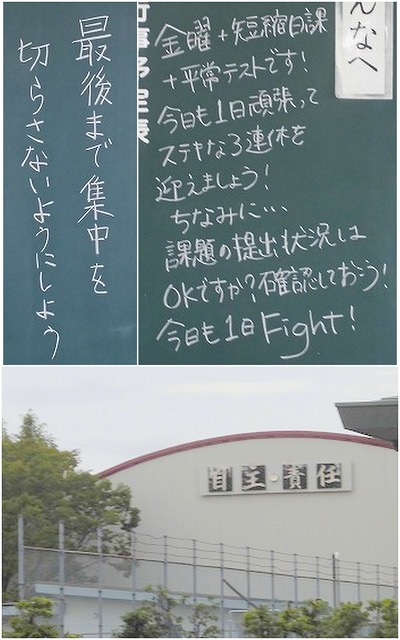 最後まで集中を
切らさないようにしよう
んなへ
金曜+短縮日課
+平常テストです!
今日も1日頑張って
ステキな3連休を
迎えましょう!
ちなみに…
課題の提出状況は
OKですか?確認しておこう!
今日も1日Fight!
自主・責任